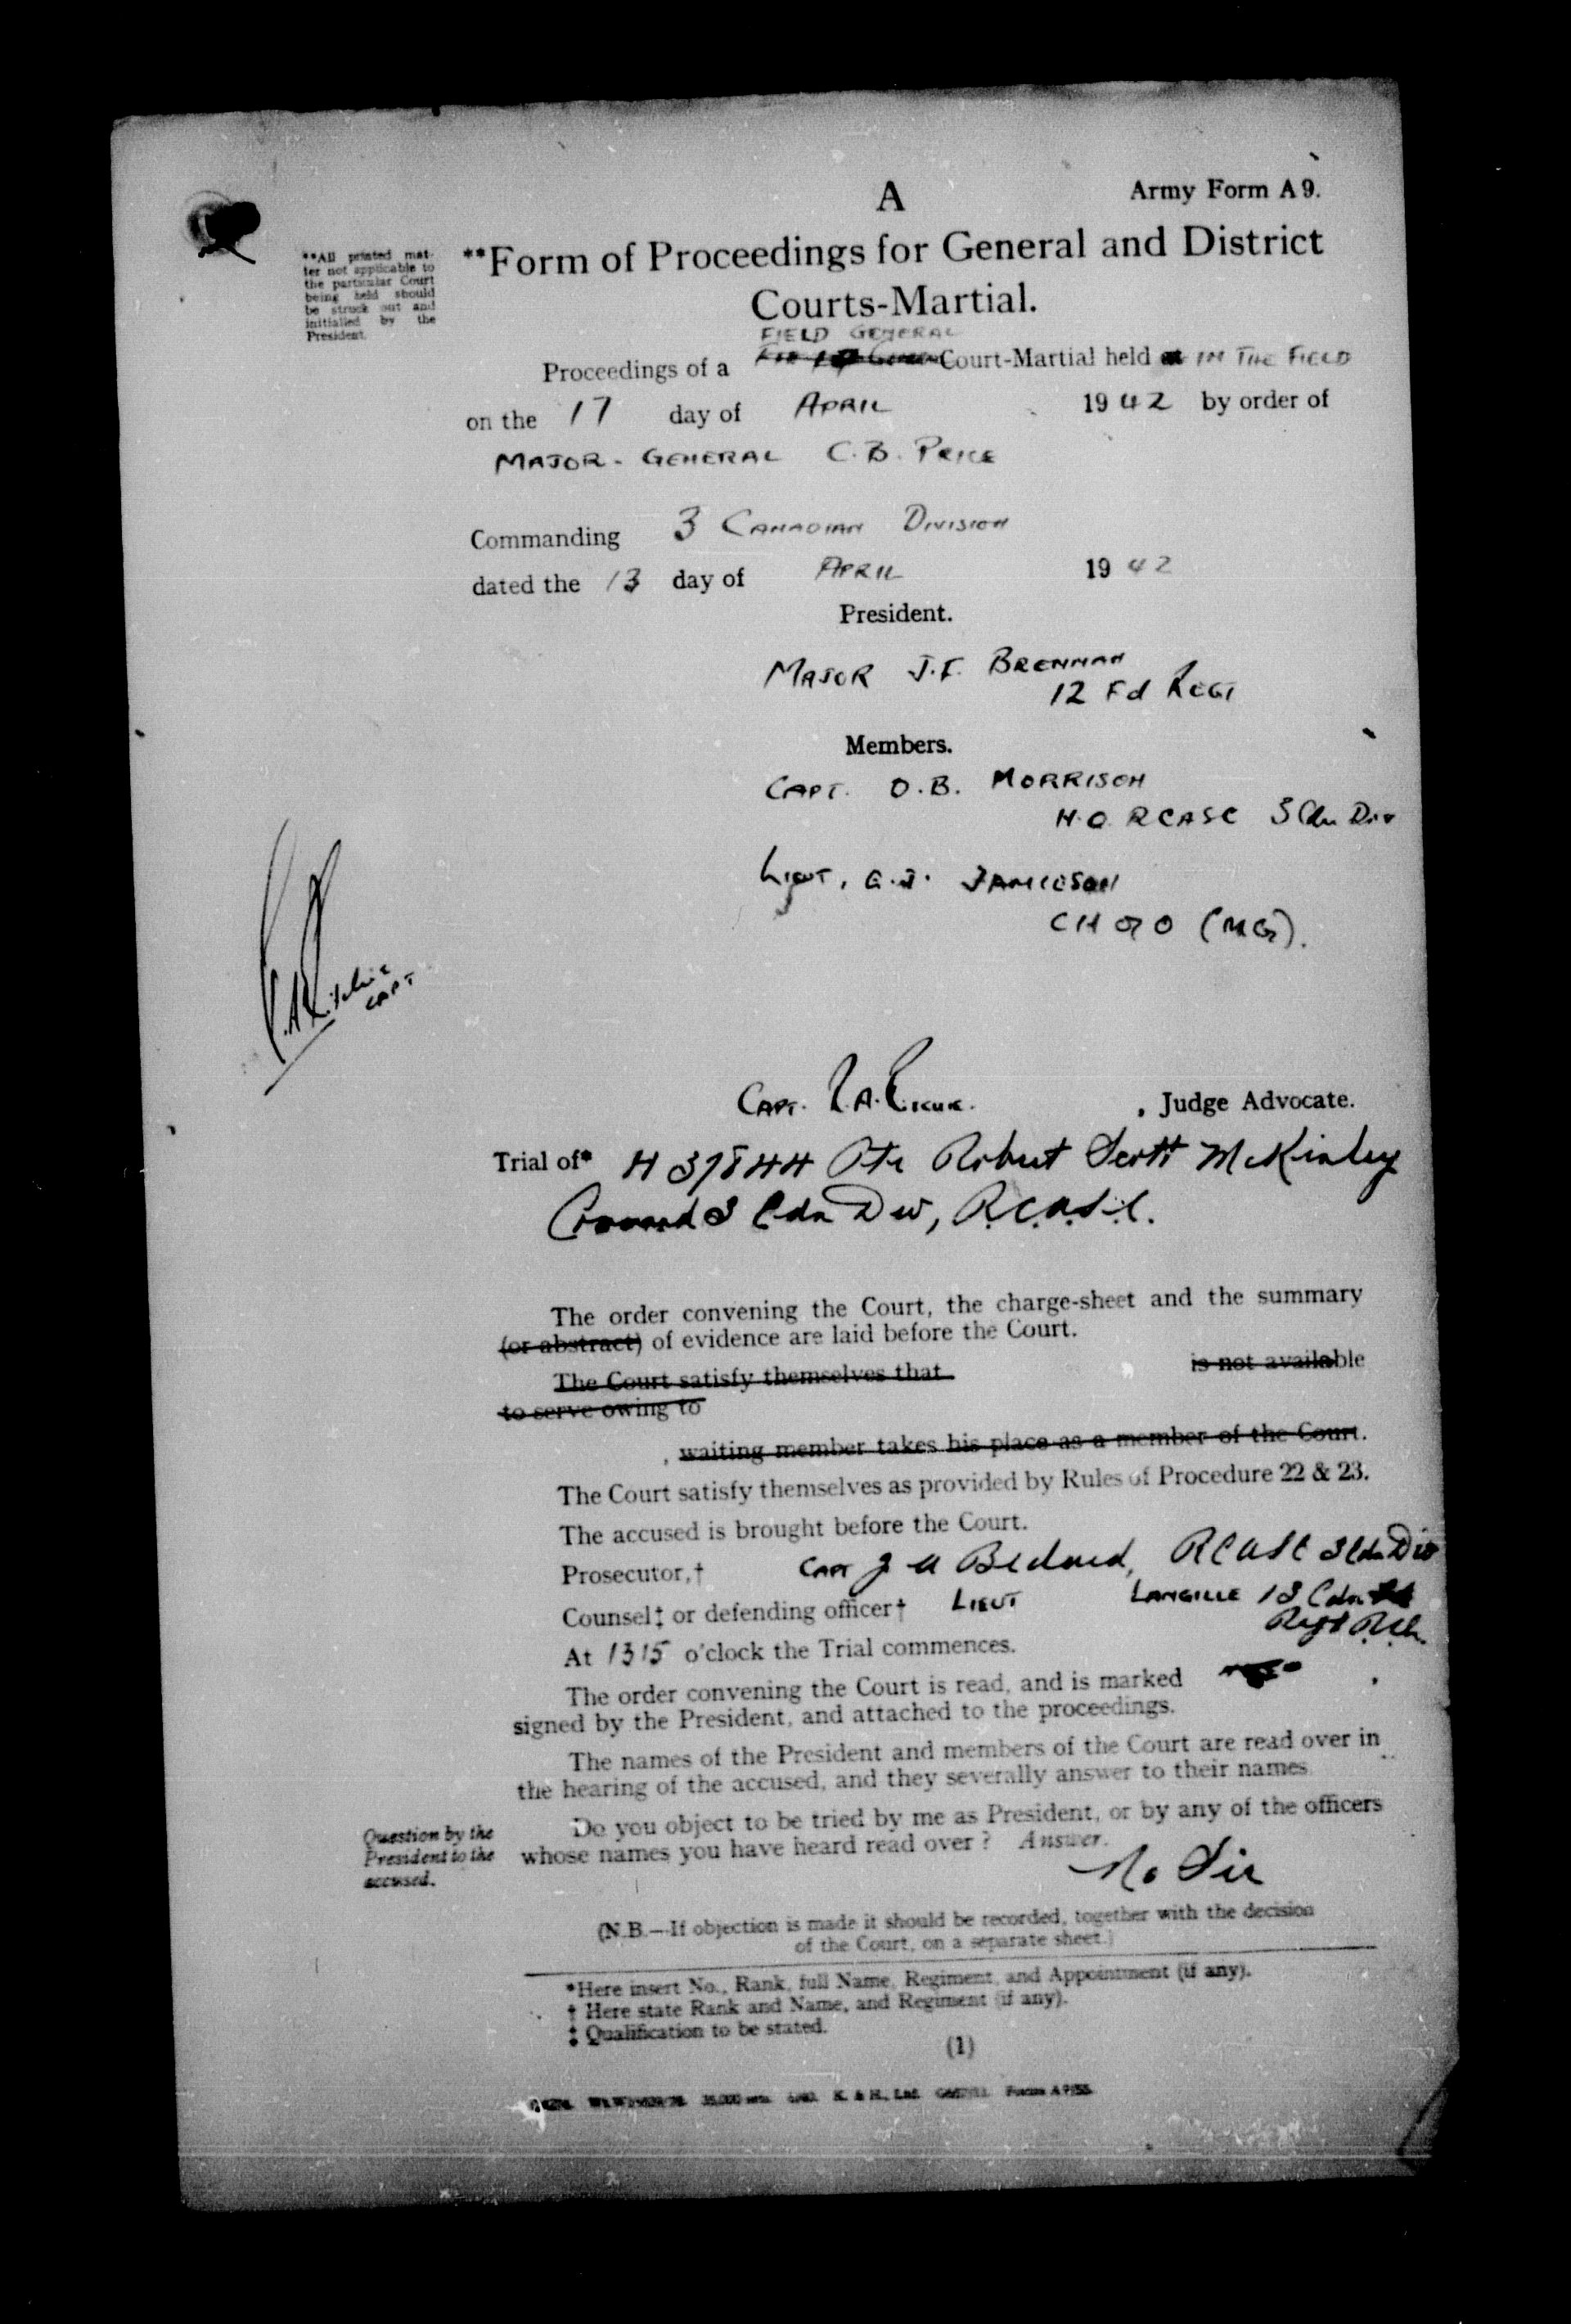 A
Army Form A 9.
**All printed mat-
ter not applicable to
the particular Court
being held should
be struck out and
initialled by the
President.
**Form of Proceedings for General and District
Courts-Martial.
FIELD GENERAL
Proceedings of a Court-Martial held at IN THE FIELD
on the 17 day of APRIL 1942 by order of
MAJOR-GENERAL C.B. PRICE
Commanding 3 CANADIAN DIVISION
dated the 13 day of APRIL 1942
President.
MAJOR J.F. BRENNAN
12 Fd REGT
Members.
CAPT. D.B. MORRISON
H.Q. RCASC 3 Cdn Div
LIEUT. G.J. JAMIESON
CH of O (MG).
CAPT
CAPT. , Judge Advocate.
Trial of* H 37844 Pte Robert Scott McKinley
3 Cdn Div, R.C.A.S.C.
The order convening the Court, the charge-sheet and the summary
(or abstract) of evidence are laid before the Court.
The Court satisfy themselves that is not available
to serve owing to
, waiting member takes his place as a member of the Court.
The Court satisfy themselves as provided by Rules of Procedure 22 & 23.
The accused is brought before the Court.
Prosecutor,† CAPT J A Bedard, RCASC 3 Cdn Div
Counsel‡ or defending officer† LIEUT LANGILLE 13 Cdn
Regt RCA.
At 1315 o'clock the Trial commences.
The order convening the Court is read, and is marked .
signed by the President, and attached to the proceedings.
The names of the President and members of the Court are read over in
the hearing of the accused, and they severally answer to their names.
Question by the
President to the
accused.
Do you object to be tried by me as President, or by any of the officers
whose names you have heard read over ? Answer.
No Sir
(N.B.—If objection is made it should be recorded, together with the decision
of the Court, on a separate sheet.)
*Here insert No., Rank, full Name, Regiment, and Appointment (if any).
† Here state Rank and Name, and Regiment (if any).
‡ Qualification to be stated.
(1)
K. & H., Ltd.